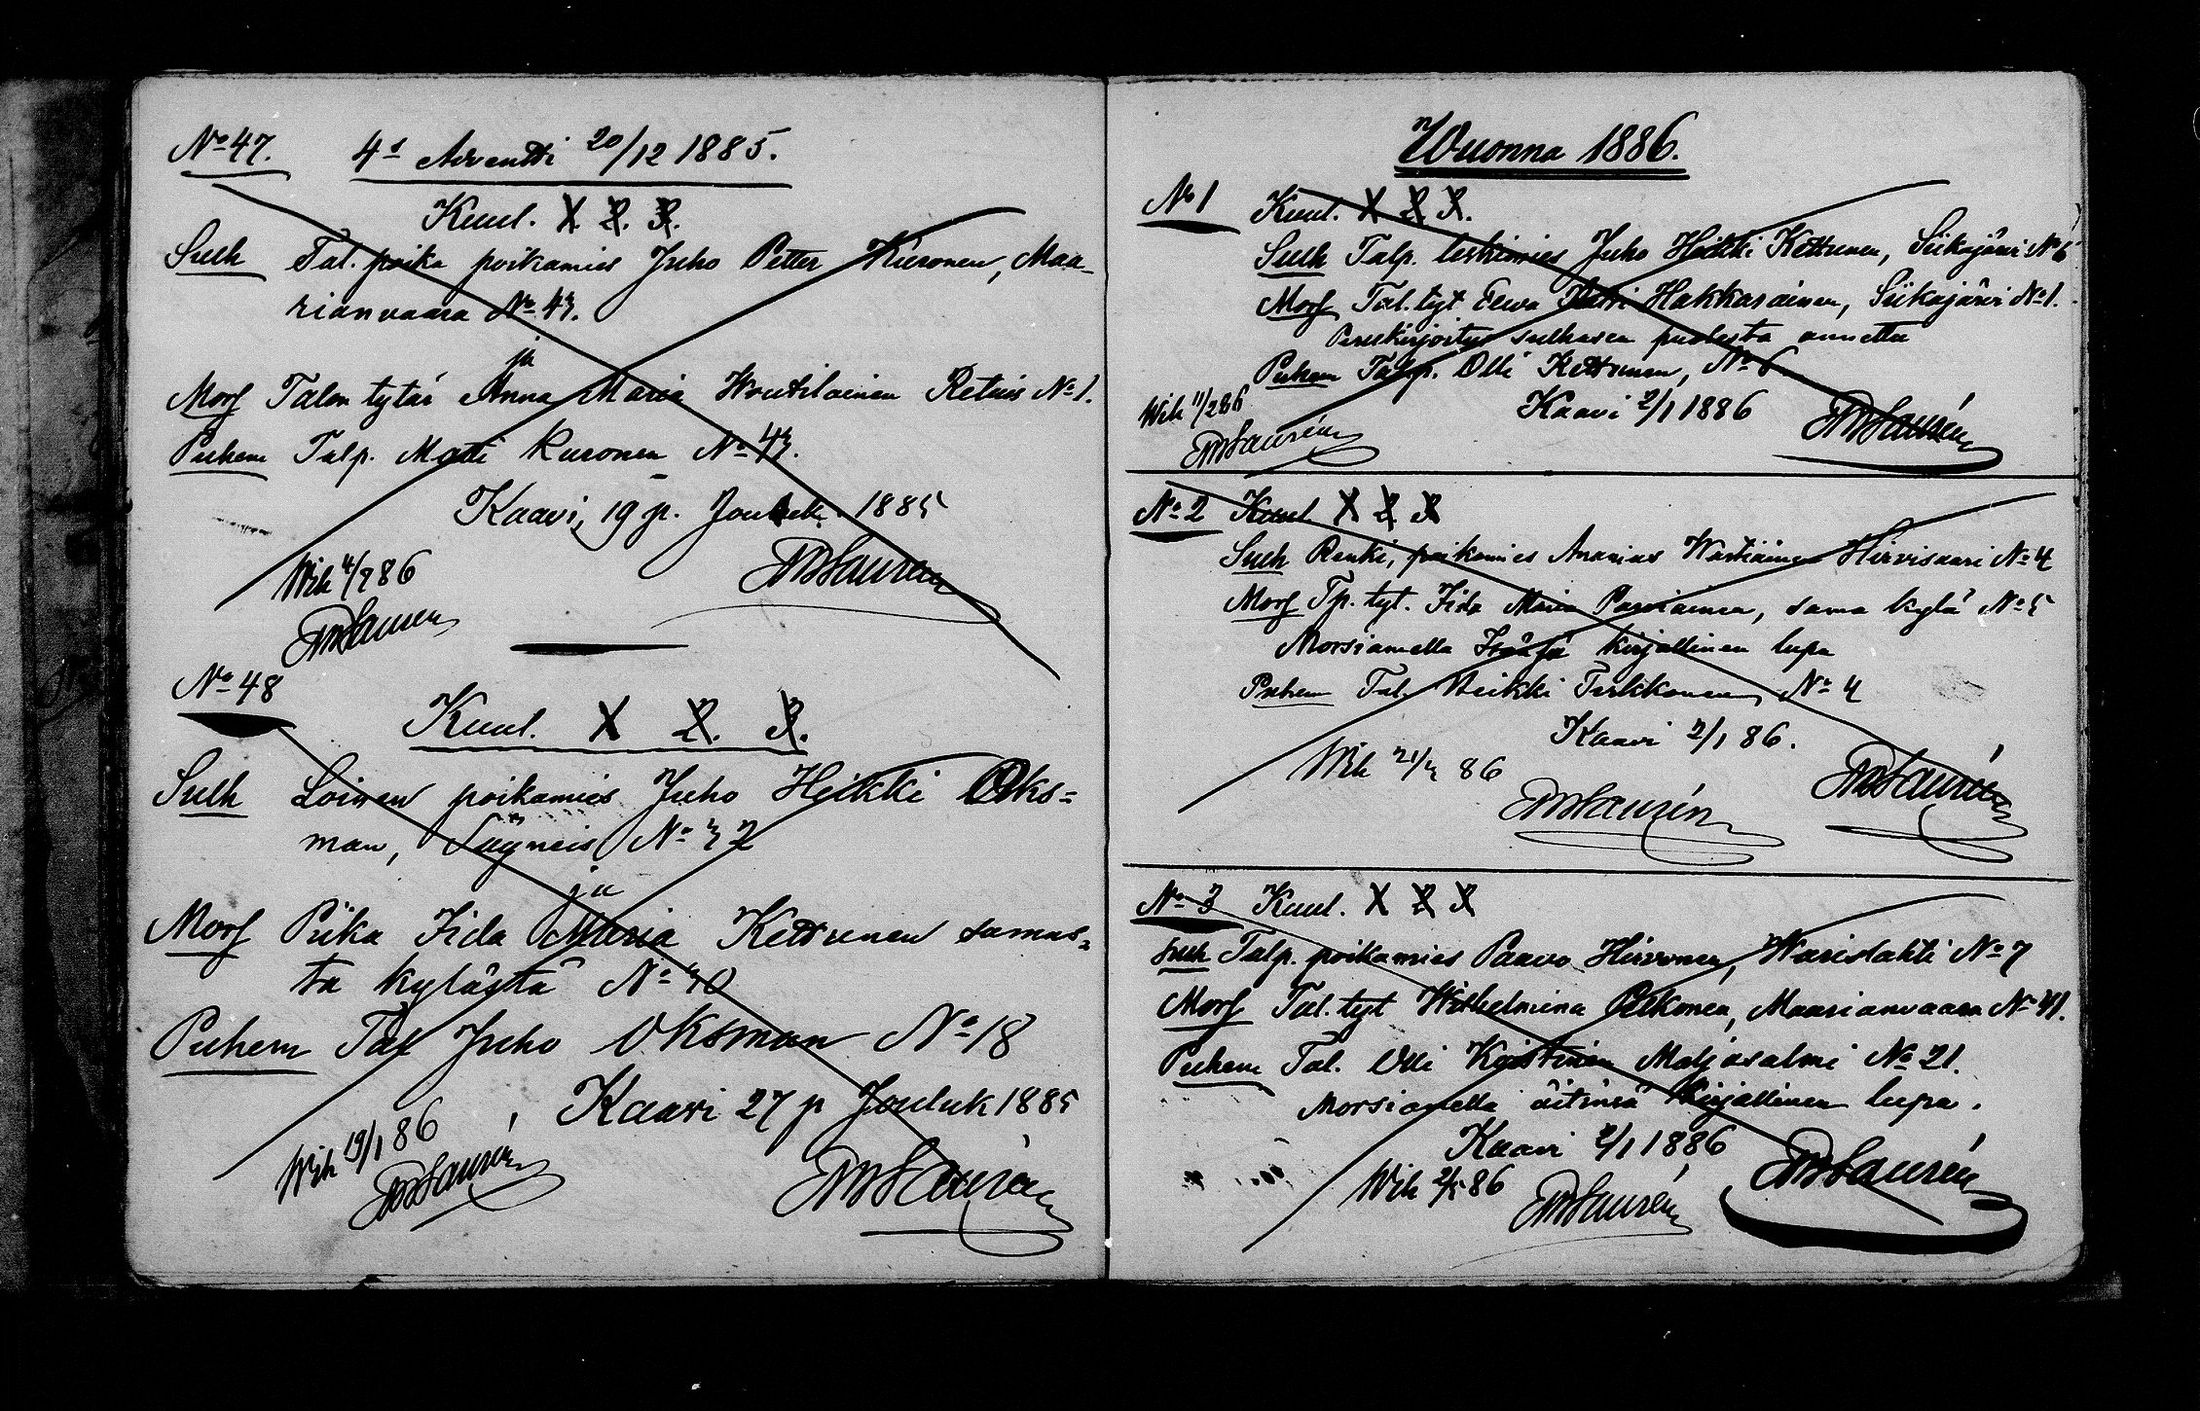 No 47. 4s Adventti 20/12 1885.
Kuul. X. 2. 3.
Sulh Tal. poika poikamies Juho Petter Kuronen, Maa-
rianvaara No 43.
ja
Mors Talon tytär Anna Maria Woutilainen Retunis No 1.
Puhem Talp. Matti Kuronen No 43.
Kaavi, 19 p. Jouluk. 1885
Wih 4/2 86
No 48
Kuul. X 2. 3.
Sulh Loinen poikamies Juho Heikki Oks=
man, Säyneis No 32
ja
Mors Piika Iida Maria Kettunen samas=
ta kylästä No 40
Puhem Tal Juho Oksman No 18
Kaavi 27 p Jouluk 1885
Wih 19/1 86
Wuonna 1886.
No 1 Kuul. X 2 3.
Sulh Talp. leskimies Juho Heikki Kettunen, Siikajärvi No 6
Mors Tal. tyt. Eewa Hakkarainen, Siikajärvi No 1.
Perukirjoitus sulhasen puolesta annettu
Puhem Talp. Olli Kettunen, No 6
Wih 11/2 86 Kaavi 2/1 1886
No 2 Kuul X 2 3
Sulh Renki, poikamies Ananias Wartiainen Hirvisaari No 4
Mors Tp. tyt. Iida Maria Parviainen, sama kylä No 5
Morsiamella Isänsä kirjallinen lupa
Puhem Tal. Heikki Tirkkonen, No 4
Kaavi 2/1 86.
Wih 21/3 86
No 3 Kuul. X 2 3
Sulh Talp. poikamies Paavo Hirvonen, Warislahti No 7
Mors Tal. tyt Wilhelmina Pitkonen, Maarianvaara No 41.
Puhem Tal. Olli Maljasalmi No 21.
Morsiamella äitinsä kirjallinen lupa.
Kaavi 2/1 1886
Wih 2/5 86